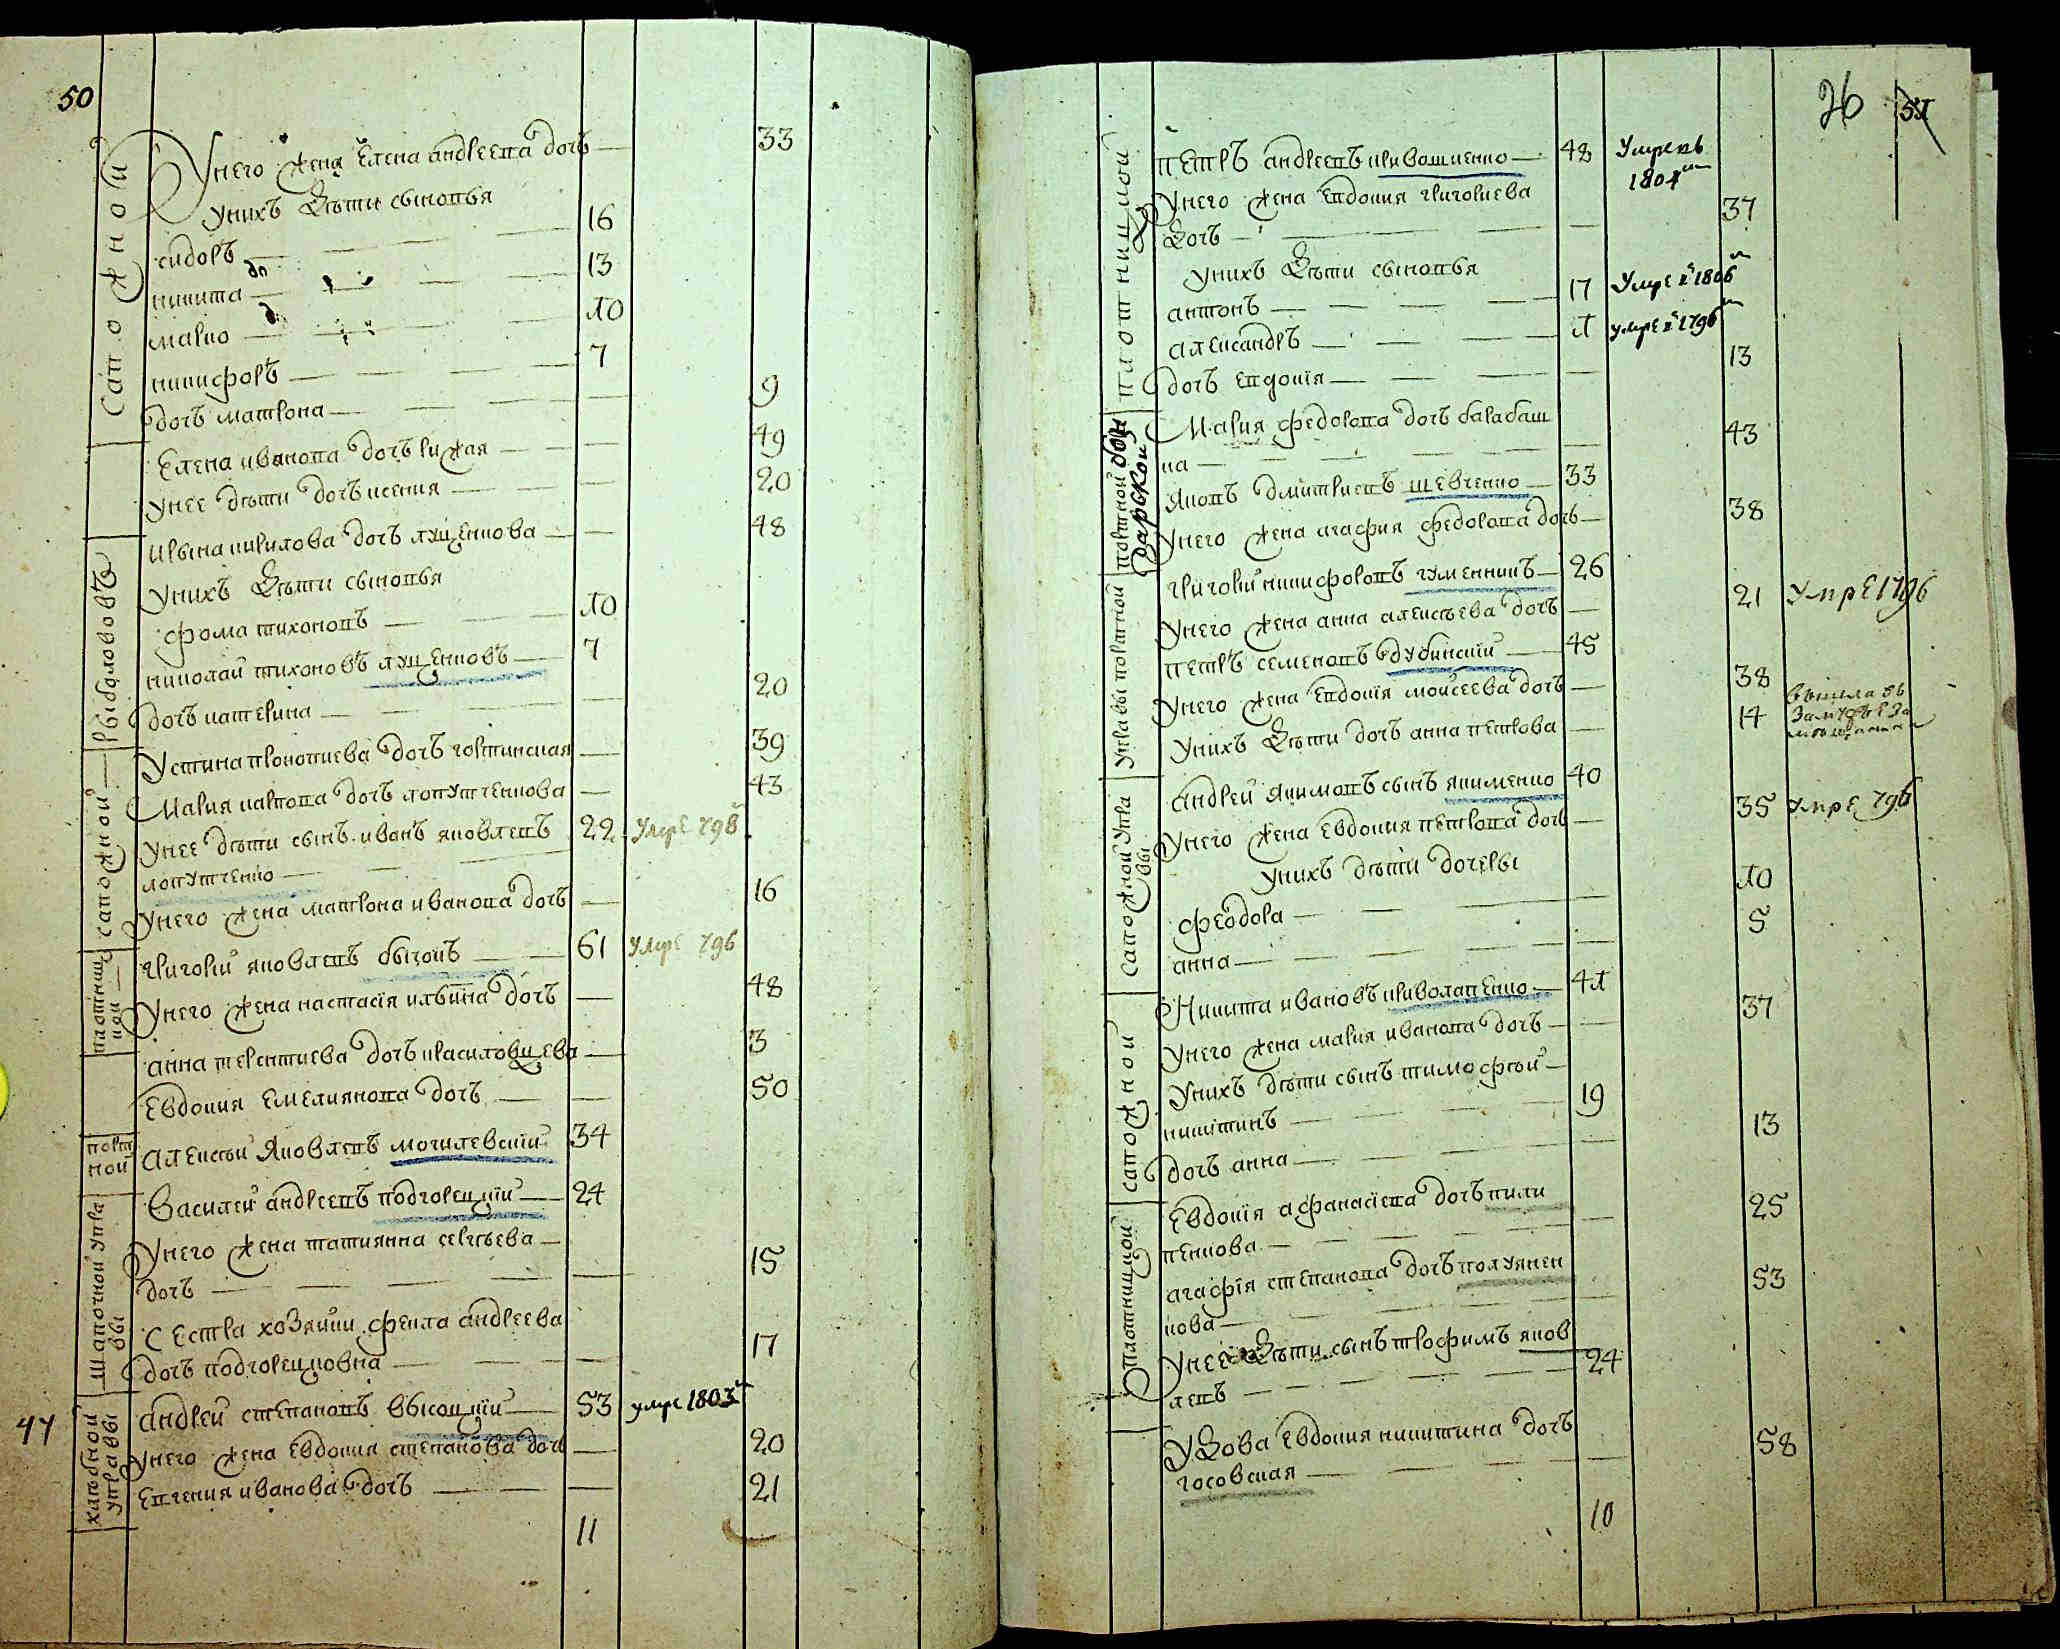 50
Сапожной
Унего жена Елена андреева дочь 33
Унихъ дѣти сыновья
сидоръ 16
никита 13
марко 10
никифоръ 7
дочь матрона 9
Елена иванова дочь рижая 49
Унее дѣти дочь ксения 20
Рыболововъ
Ирына кирилова дочь лущенкова 48
Унихъ дѣти сыновья
фома тихоновъ 10
николай тихоновъ лущенковъ 7
дочь катерина 20
Устина прокопиева дочь горпинская 39
Сапожной
Мария карпова дочь лопутченкова 43
Унее дѣти сынъ иванъ яковлевъ 22 Умре 798
лопутченко
Унего жена матрона иванова дочь 16
плотниц
кой
григорий яковлевъ бычокъ 61 Умре 796
Унего жена настасия ильина дочь 48
анна терентиева дочь красиловцева 3
Евдокия Емелиянова дочь 50
порт
ной
алексѣй Яковлевъ могилевский 34
Шапочной упра
вы
василей андреевъ подгорецкий 24
Унего жена татиянна сергѣева
дочь 15
Сестра хозяйки фекла андреева
дочь подгорецковна 17
47
хлѣбной
управы
андрей степановъ высоцкий 53 умре 1803
Унего жена Евдокия степанова дочь 20
Евгения иванова дочь 21
11
26 51
плотницкой
петръ андреевъ ивашченко 48 Умре въ
1804
Унего жена Евдокия григориева
дочь 37
Унихъ дѣти сыновья
антонъ 17 Умре в 1806
александръ 1 умре в 1796
дочь Евдокия 13
Мария федорова дочь балабаш
ка 43
портной
Яковъ дмитриевъ шевченко 33
Унего жена агафия федорова дочь 38
Управы портной
григорий никифоровъ гуменникъ 26
Унего жена анна алексѣева дочь 21 Умре 1796
петръ семеновъ дубинский 45
Унего жена Евдокия моисеева дочь 38
Унихъ дѣти дочь анна петрова 14 вышла въ
Замуж за
Сапожной упра
вы
андрей Якимовъ сынъ якименко 40
Унего жена Евдокия петрова дочь 35 Умре 796
Унихъ дѣти дочеры
феодора 10
анна 5
сапожной
Никита ивановъ криволапенко 41
Унего жена мария иванова дочь 37
Унихъ дѣти сынъ тимофѣй
никитинъ 19
дочь анна 13
плотницкой
Евдокия афанасиева дочь пили
пенкова 25
агафия степанова дочь полуянен
кова 53
Унее дѣти сынъ трофимъ яков
левъ 24
Удова Евдокия никитина дочь
госовская 58
10